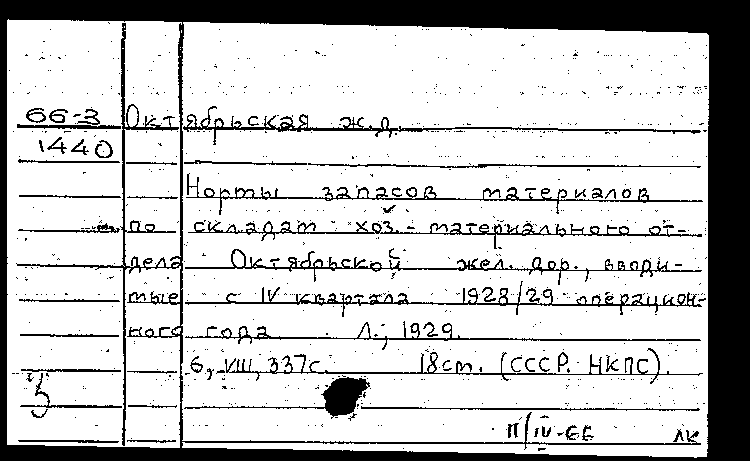 66-3 Октябрьская ж.д.
1440
Нормы запасов материалов
по складам хоз.-материального от-
дела Октябрьской жел. дор., вводи-
мые с IV квартала 1928/29 операцион-
ного года Л., 1929.
6, VIII, 337с. 18см. (СССР. НКПС).
11/IV-66 лк